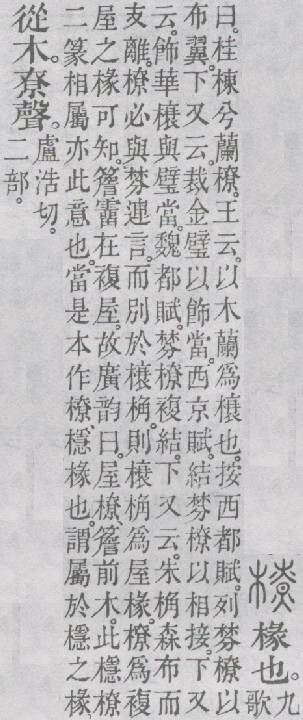 橑 椽也。九歌
曰。桂棟兮蘭橑。王云。以木蘭爲榱也。按西都賦。列棼橑以
布翼。下又云。裁金璧以飾當。西京賦。結棼橑以相接。下又
云。飾華榱與璧當。魏都賦。棼橑複結。下又云。朱桷森布而
支離。橑必與棼連言。而別於榱桷。則榱桷爲屋椽。橑爲複
屋之椽可知。簷霤在複屋。故廣韵曰。屋橑、簷前木。此檼橑
二篆相屬亦此意也。當是本作橑、檼椽也。謂屬於檼之椽。
從木。尞聲。盧浩切。二部。